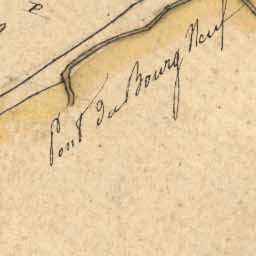 Pont du Bourg Neuf